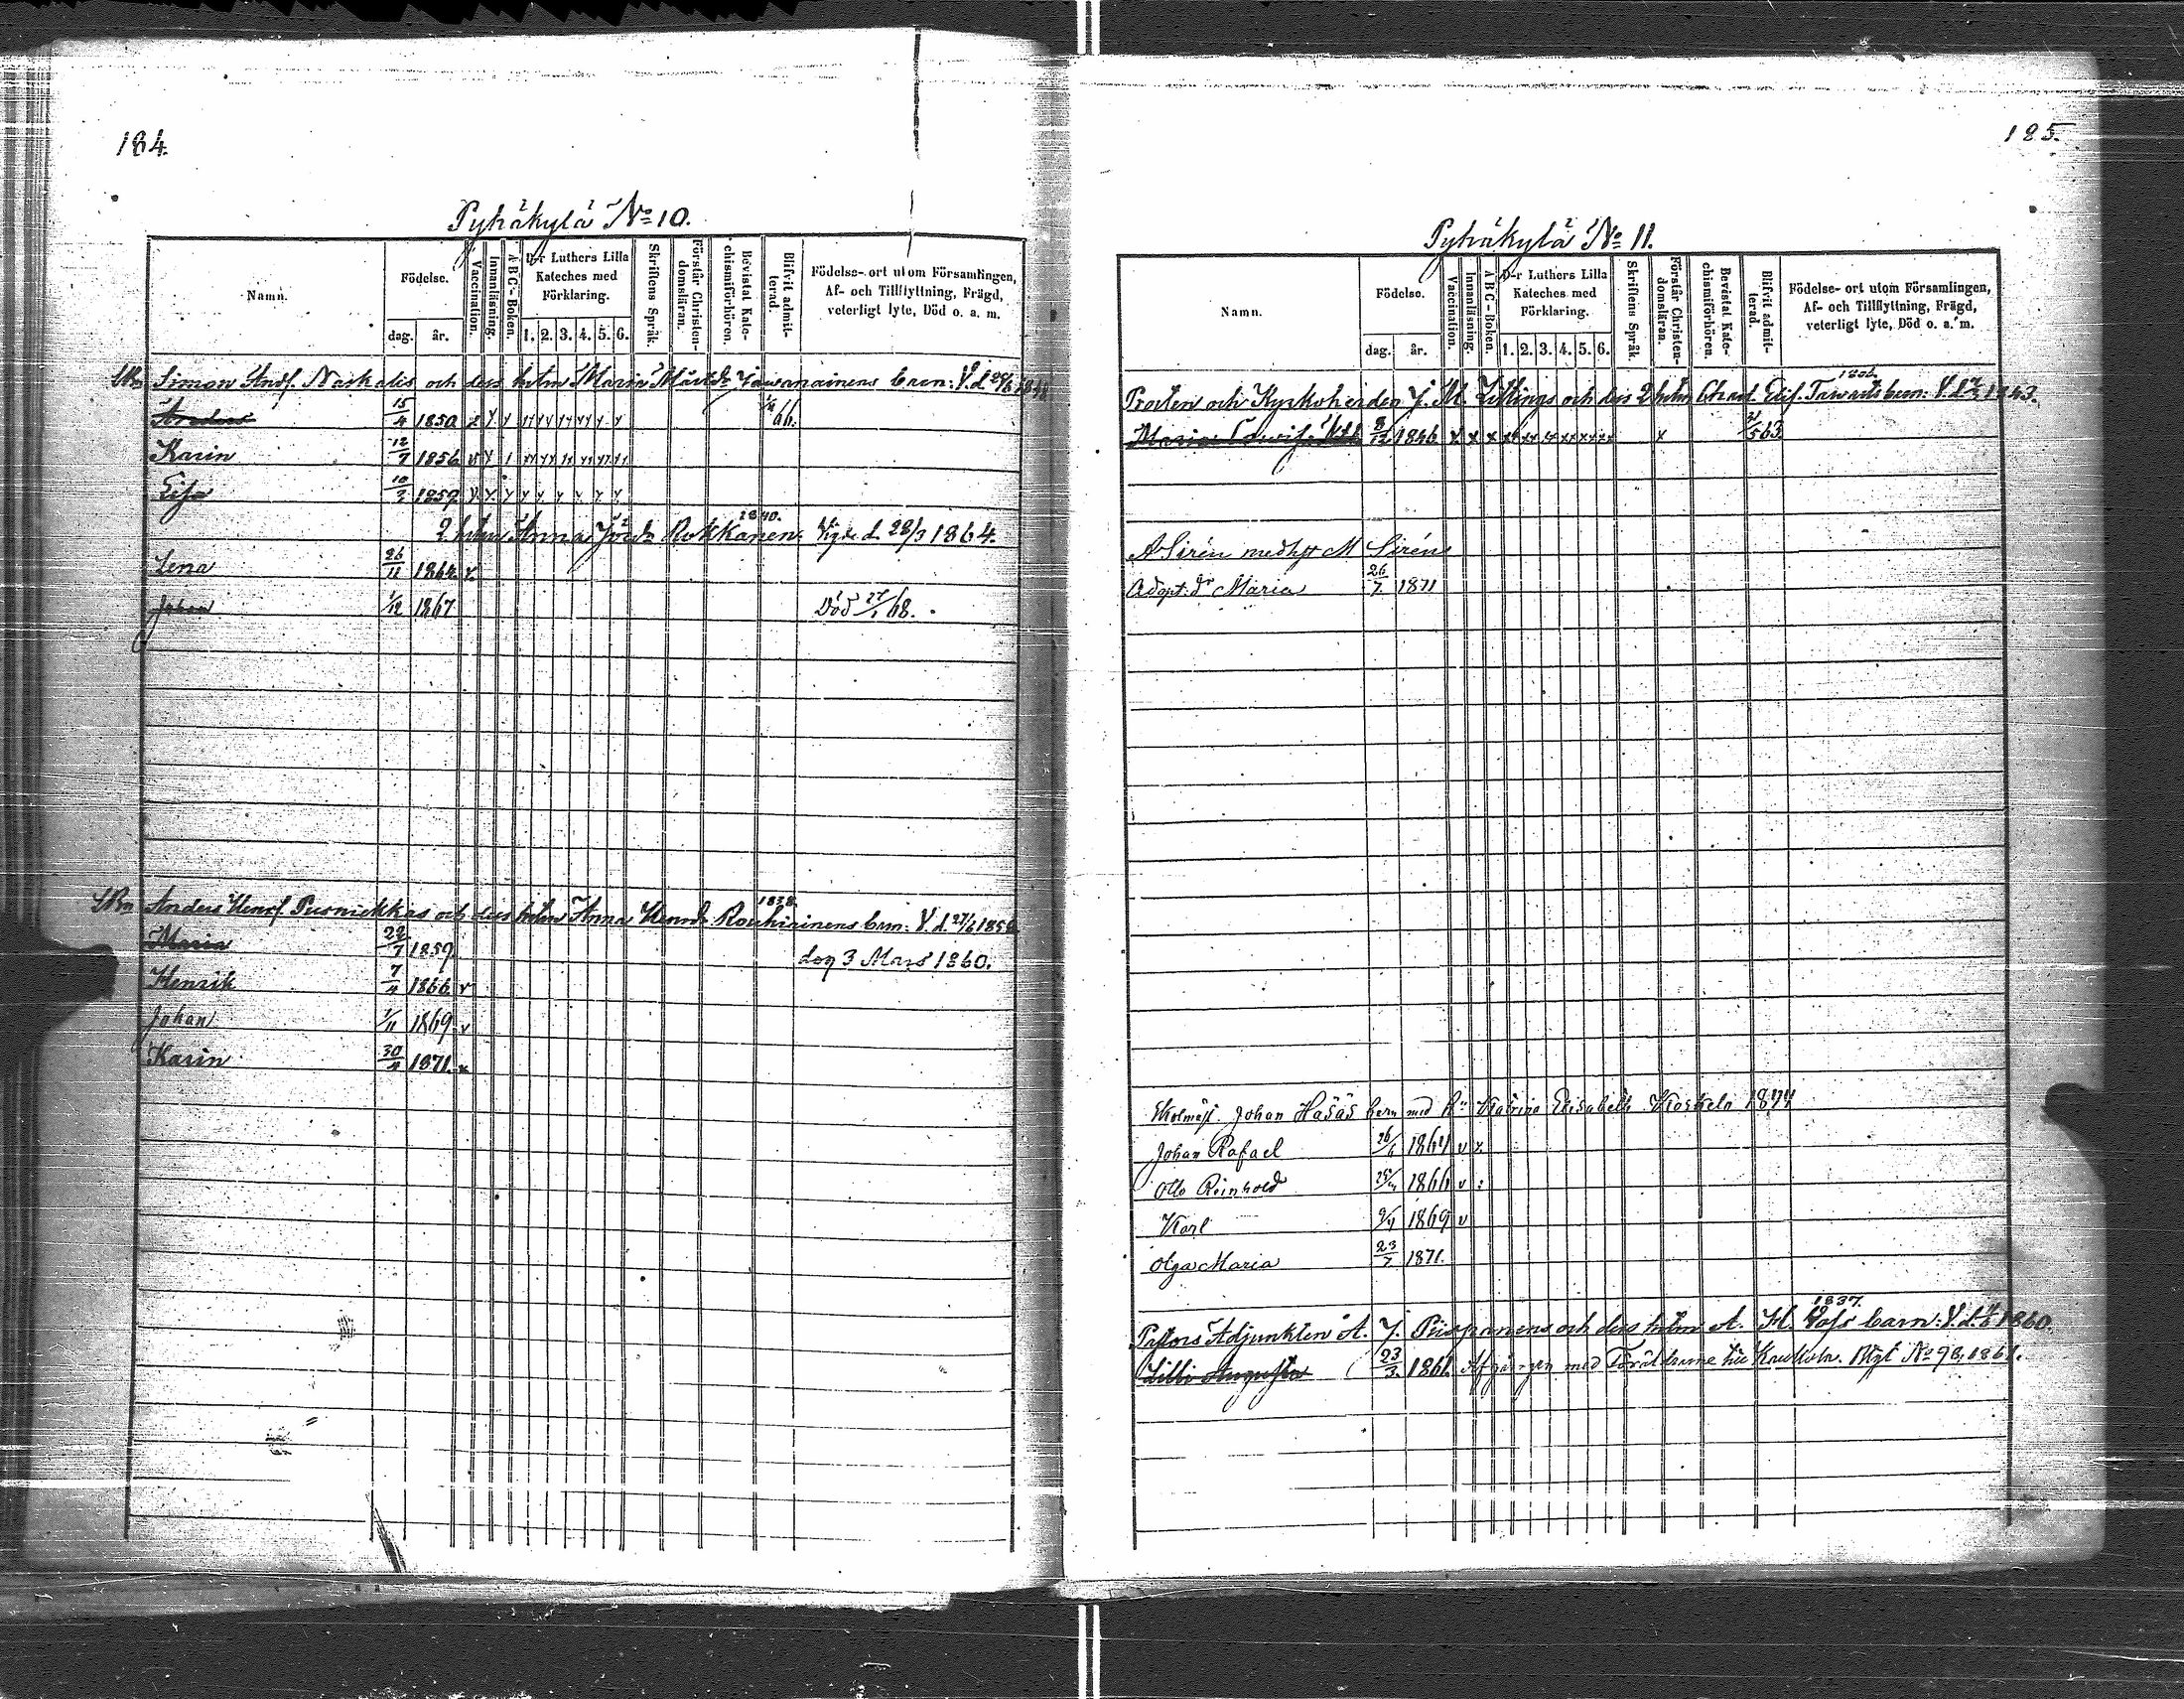 184.
Pyhäkylä No 10.
Namn.
Födelse.
dag.
år.
Vaccination.
Innanläsning.
A B C - Boken.
D:r Luthers Lilla
Kateches med
Förklaring.
1. 2. 3. 4. 5. 6.
Skriftens Språk.
Förstår Christen-
domsläran.
Bevistat Kate-
chismiförhören.
Blifvit admit-
terad.
Födelse- ort utom Församlingen,
Af- och Tillflyttning, Frägd,
veterligt lyte, Död o. a. m.
Simon Andf. Naskalis och dess hstru Maria Mårtdr barn: V. d.
Anders 15/4 1850
Karin 12/7 1856
Lisa 10/3 1859
1840.
2 hstru Anna Rokkanen. Vigde d. 28/3 1864.
Lena 26/11 1864
Johan 1/12 1867 Död 68.
1838.
Anders Henrf Pusniekkas och dess hstru Anna Henrdr Rouhiainens barn: V. d.
Maria 22/7 1859 dog 3 Mars 1860.
Henrik 7/4 1866
Johan 1/11 1869
Karin 30/4 1871.
185.
Pyhäkylä No 11.
Namn.
Födelse.
dag.
år.
Vaccination.
Innanläsning.
A B C - Boken.
D:r Luthers Lilla
Kateches med
Förklaring.
1. 2. 3. 4. 5. 6.
Skriftens Språk.
Förstår Christen-
domsläran.
Bevistat Kate-
chismiförhören.
Blifvit admit-
terad.
Födelse- ort utom Församlingen,
Af- och Tillflyttning, Frägd,
veterligt lyte, Död o. a. m.
Prosten och Kyrkoherden J. M. och dess 2 hstru Elis. barn: V. d. 1843.
Maria 8/12 1846
A Sirén med hst M Sirén
Adopt. dr Maria 26/7 1871
Johan Hasäs barn med Katrina Elisabeth Koskelo 1844
Johan Rafael 1864
Otto Reinhold 1866
Karl 9/4 1869
Olga Maria 23/7 1871.
1837.
Pastors Adjunkten A. J. Piispanens och dess hstru A. H. barn: V. d. 1860.
Lilli Augusta 23/3. 1861. Afgången med Föräldrarne till Kaukola. Btgt No 98, 1861.